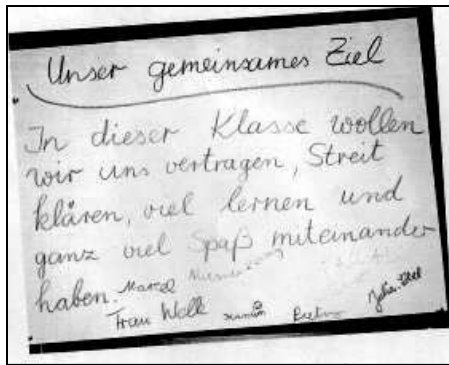 Unser gemeinsames Ziel
In dieser Klasse wollen
wir uns vertragen, Streit
klären, viel lernen und
ganz viel Spaß miteinander
haben. Marcel
Frau Wolk